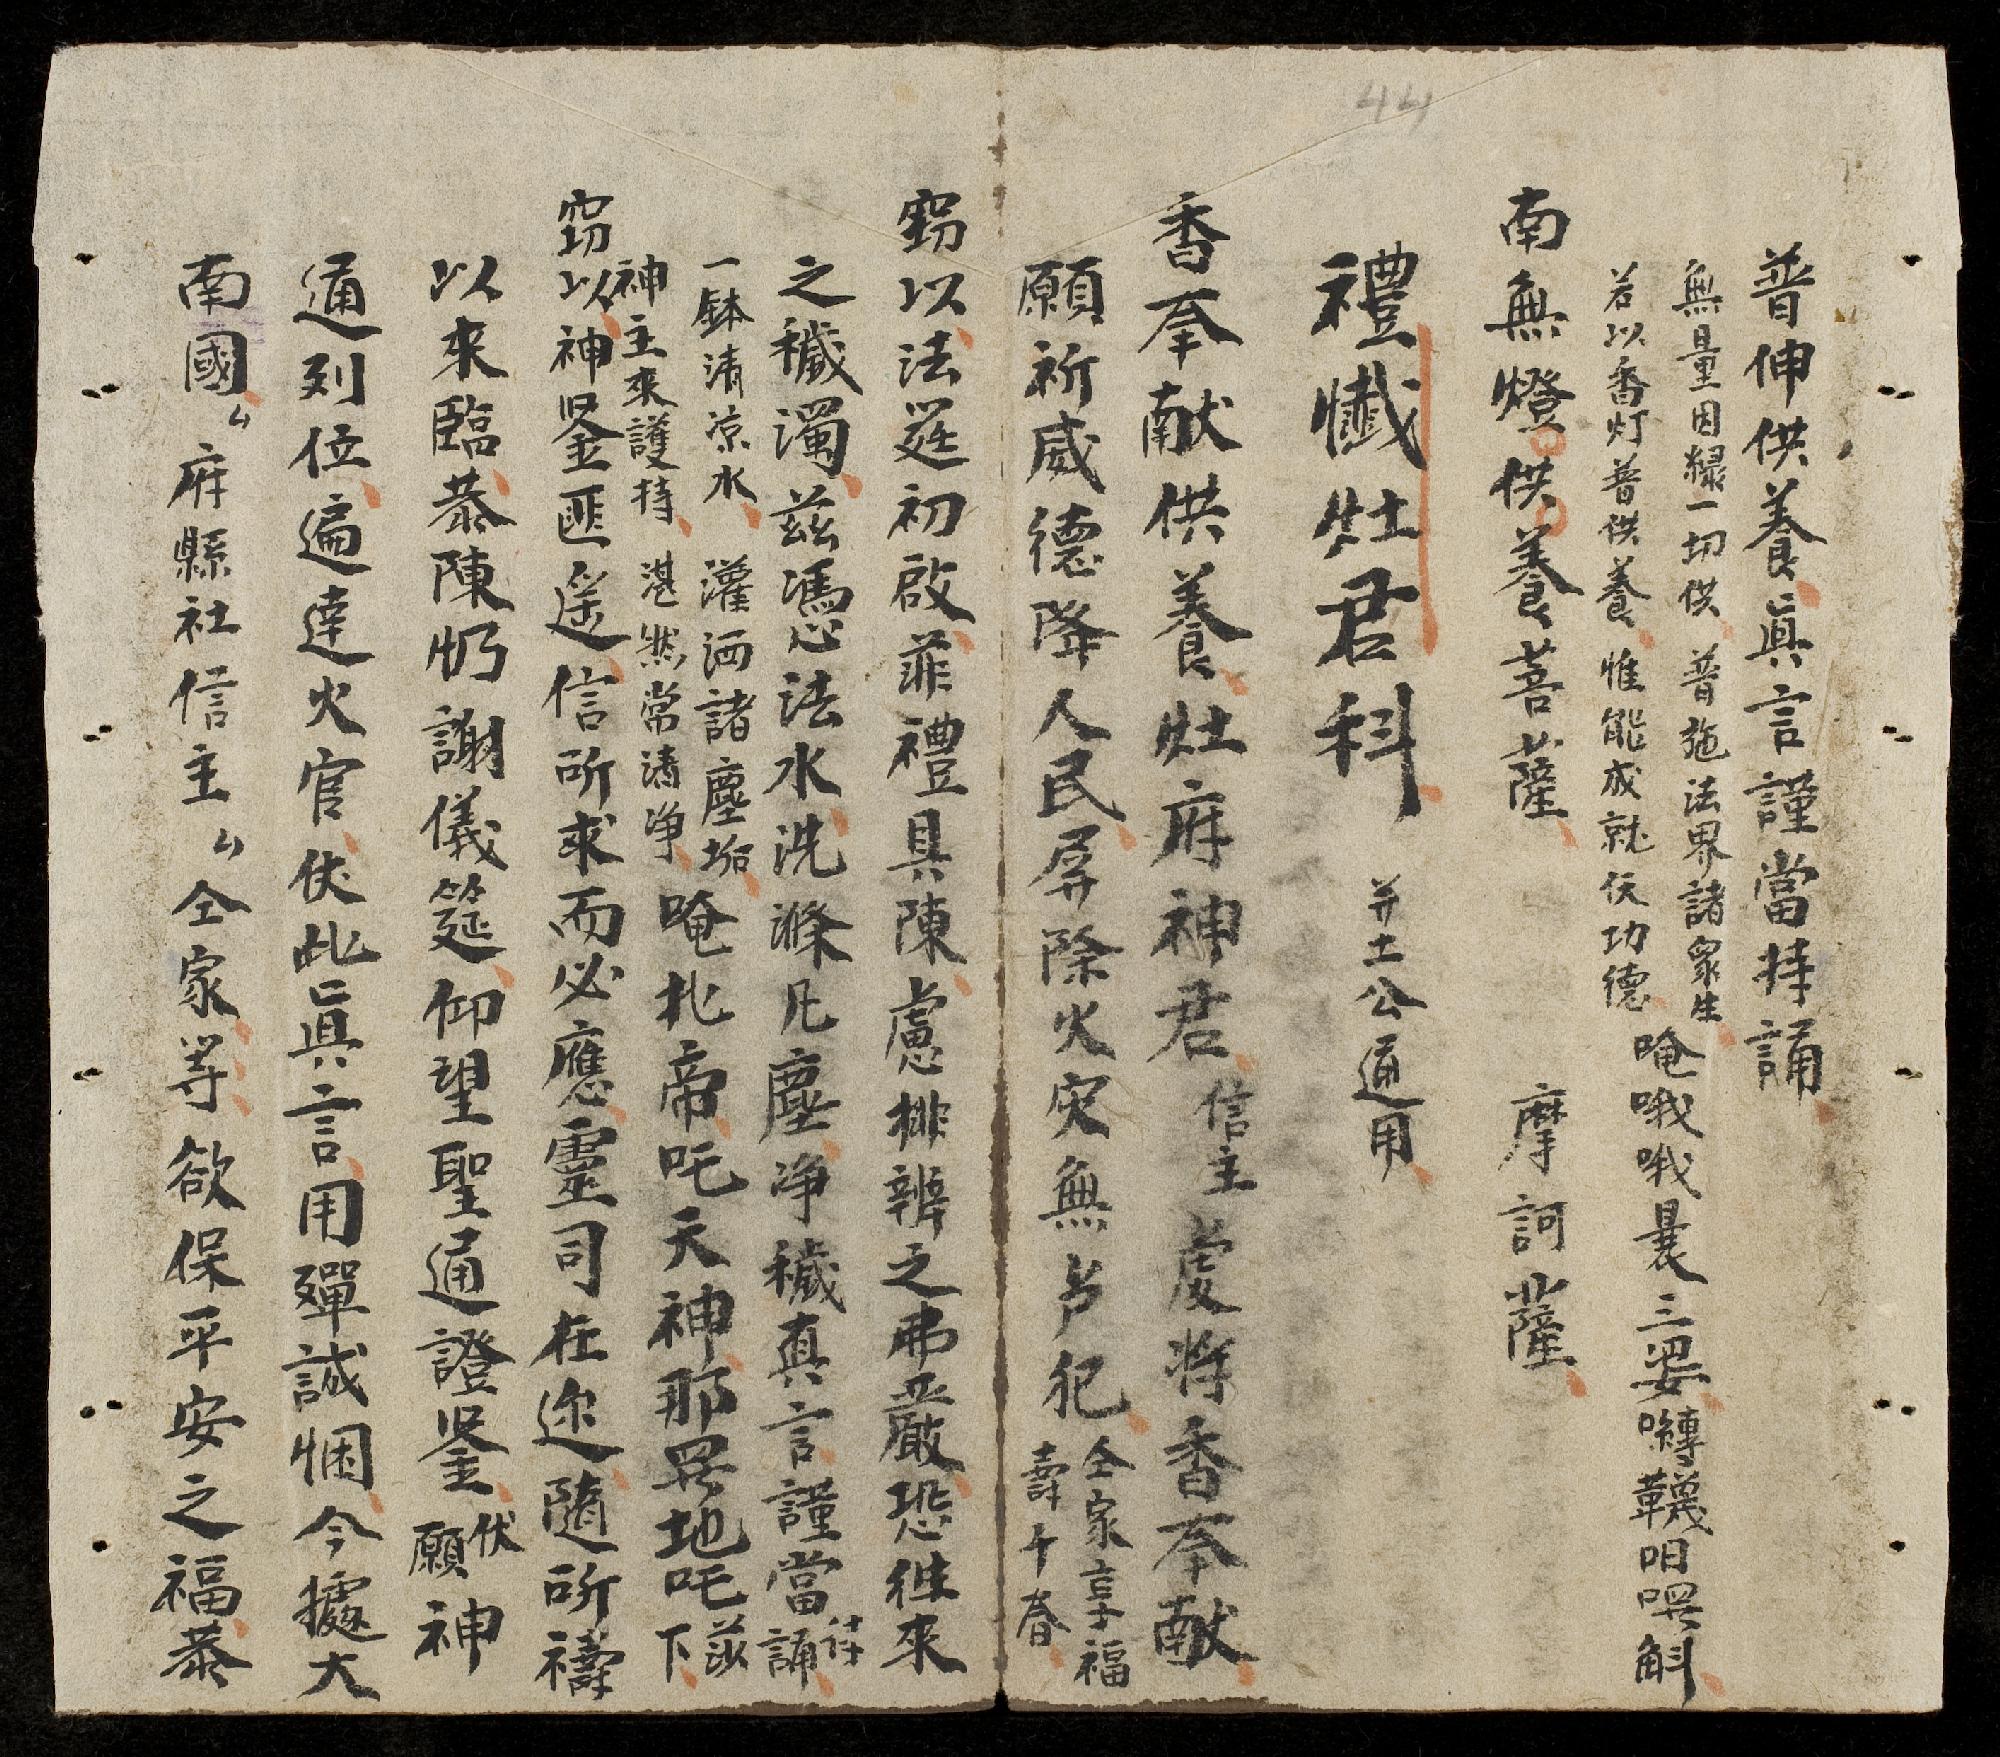 44
普伸供養真言謹當持誦
無量因緣一切供 普施法界諸眾生
若以香灯普供養 惟能成就伏功德
唵哦哦曩三婆囀韈日喂斛
南無燈供養菩薩 摩訶薩
禮懺灶君科 并土公通用
香奉献供養灶府神君 信主虔将香奉献
願祈威德降人民屏除火灾無占犯 仝家享福
壽千春
窃以法筵初啟菲禮具陳慮排辨之弗嚴恐徃來
之穢濁兹馮法水洗滌凡塵净穢真言謹當持
誦
一鉢清凉水 灌洒諸塵垢
神主來護持 湛然常清净
唵北帝吒天神那 地吒兹
下
窃以神鉴匪遥信所求而必應靈司在迩隨所禱
以來臨恭陳 謝儀筵仰望聖通證鉴伏
願神
通列位遍達火官伏此真言用殫誠悃今據大
南國厶府縣社信主厶仝家等欲保平安之福恭